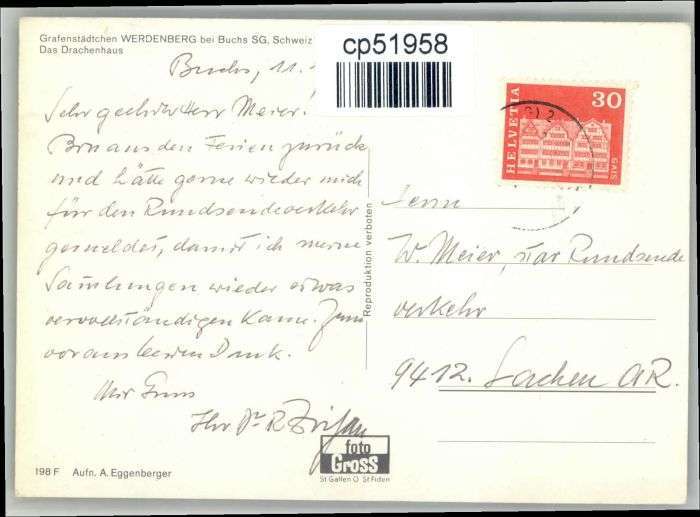 Grafenstädtchen WERDENBERG bei Buchs SG, Schweiz
Das Drachenhaus
cp51958
Buchs, 11.
Sehr geehrter Herr Meier!
Bin aus den Ferien zurück
und hätte gerne wieder mich
für den Rundsendeverkehr
gemeldet, damit ich meine
Samlungen wieder etwas
vervollständigen kann. Zum
voraus besten Dank.
Mit Gruss
Ihr Dr R
HELVETIA
30
GAIS
Reproduktion verboten
Herrn
W. Meier, Rundsende
verkehr
9412. Lachen AR.
foto
Gross
St Gallen O St Fiden
198 F Aufn. A. Eggenberger